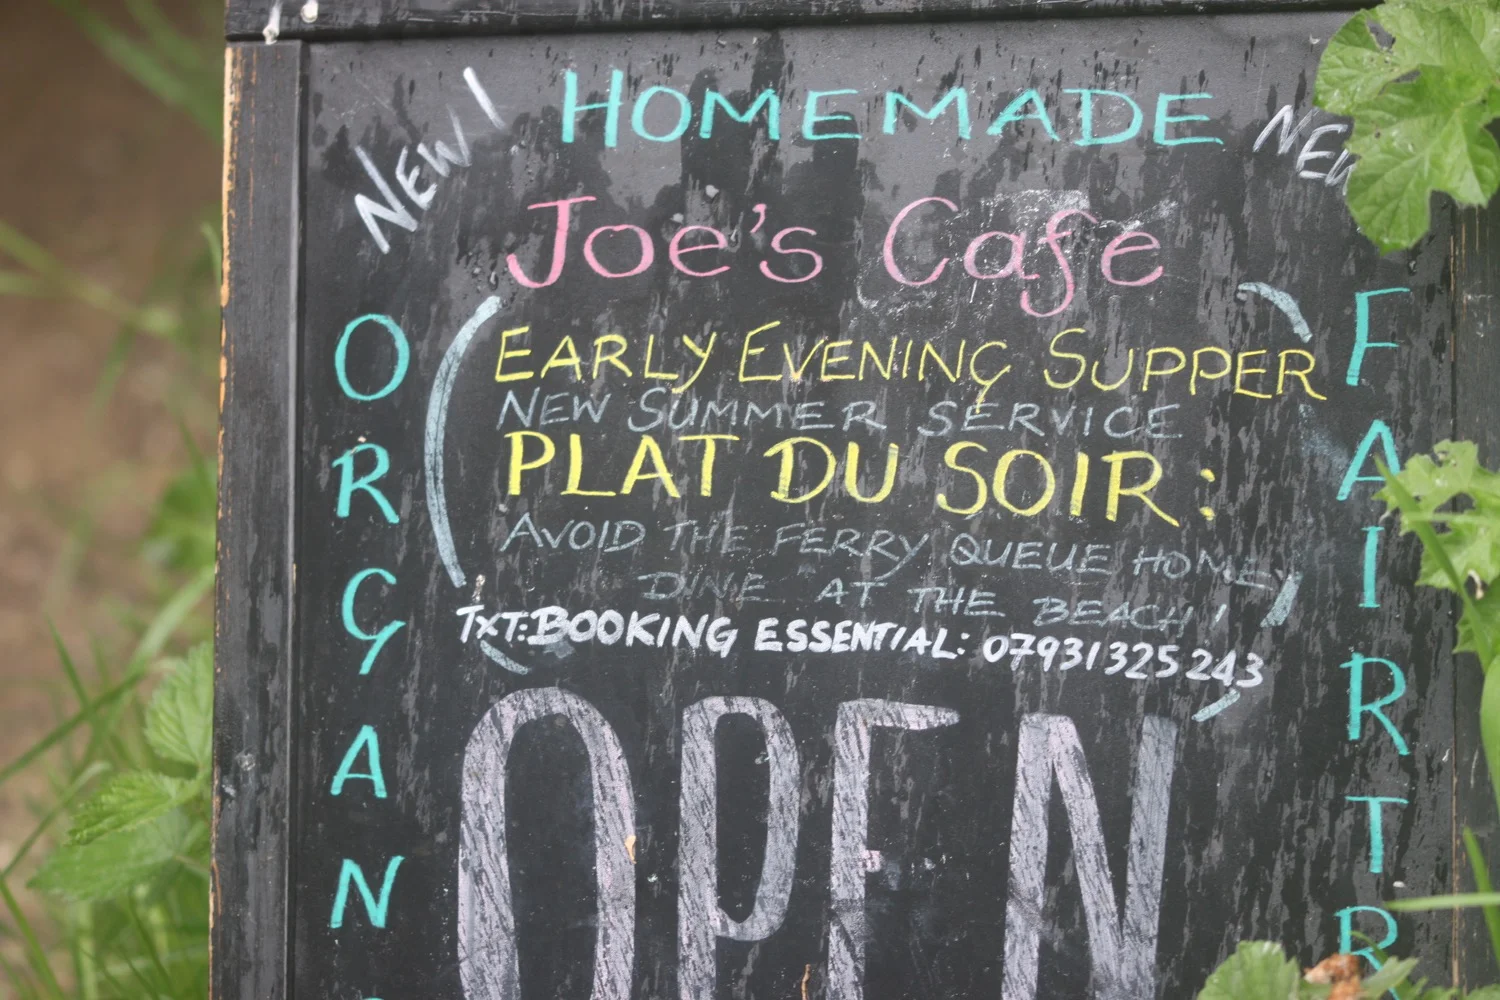 NEW!
HOMEMADE
NEW
Joe's Cafe
EARLY EVENING SUPPER
NEW SUMMER SERVICE
PLAT DU SOIR:
AVOID THE FERRY QUEUE HOME,
DINE AT THE BEACH!
TXT: BOOKING ESSENTIAL: 07931325243
OPEN
ORGAN
FAIRTR